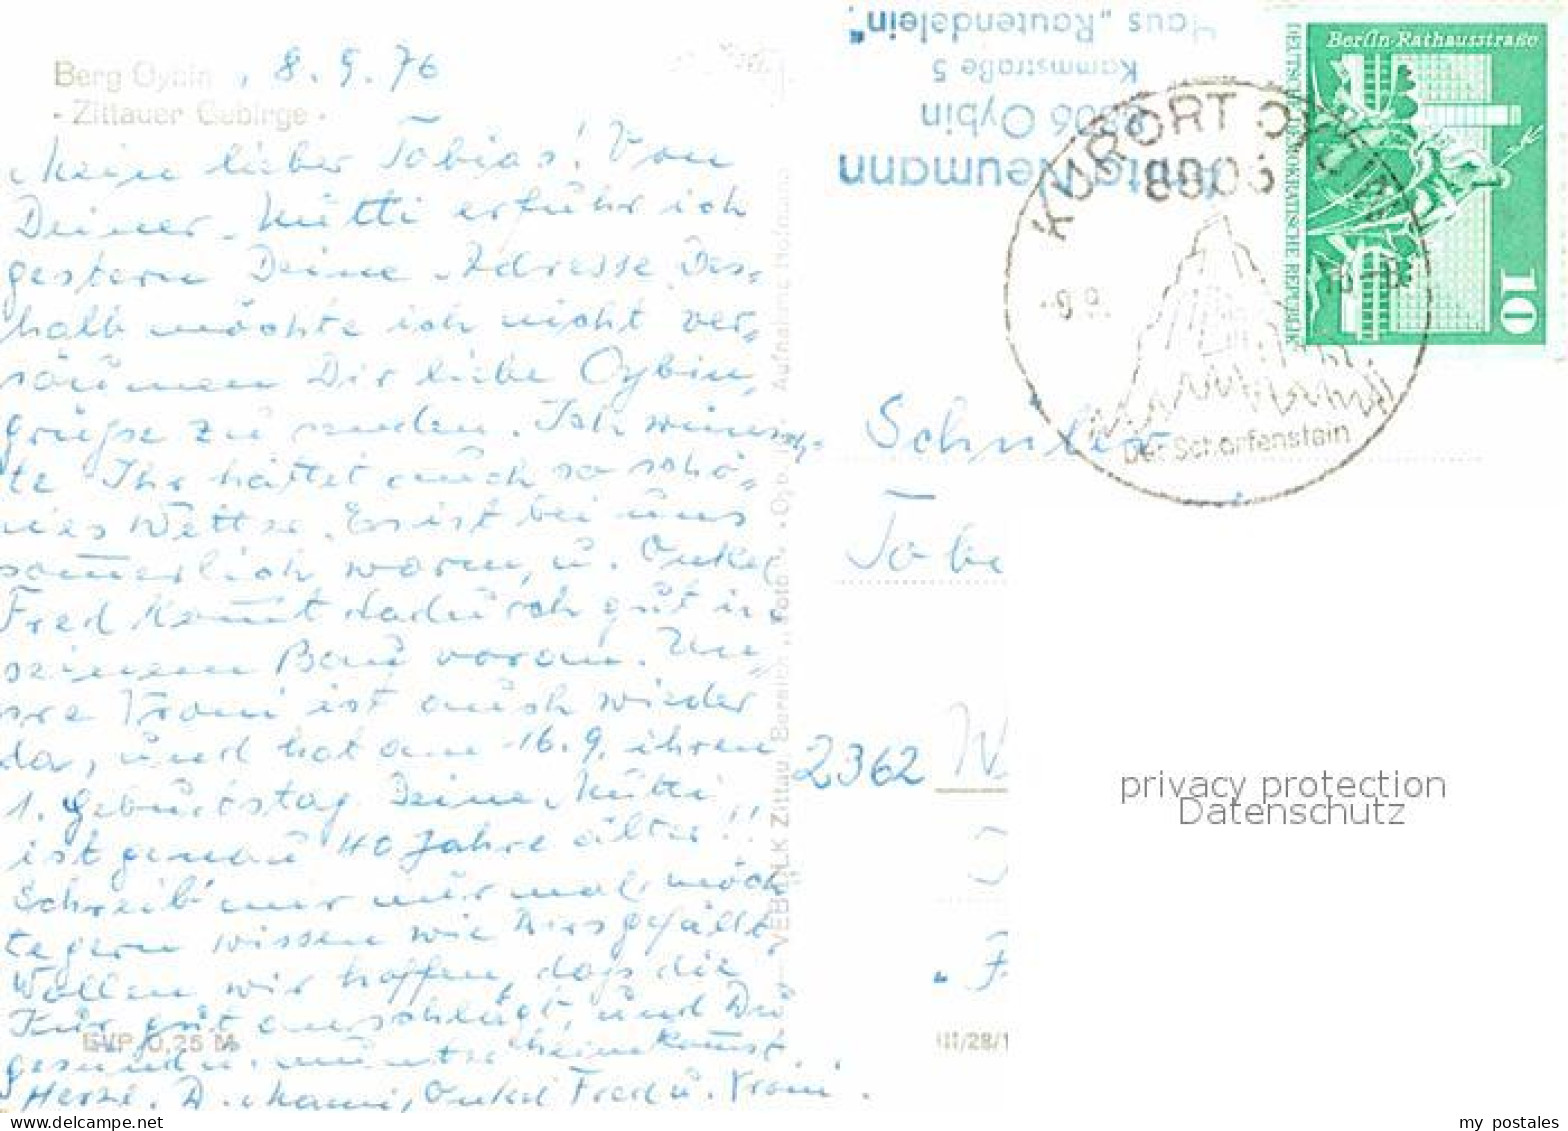 Berg Oybin, 8.9.76
- Zittauer Gebirge -
Mein lieber Tobias! Von
Deiner Mutti erfuhr ich
gestern Deine Adresse. Des=
halb möchte ich nicht ver=
säumen Dir liebe Oybin,
grüße zu senden. Ich wünsch=
te Ihr hättet auch so schö=
nes Wetter. Es ist bei uns
sommerlich warm, u. Onkel
Fred kommt dadurch gut in
seinem Bau voran. Un=
sre Vroni ist auch wieder
da, und hat am 16.9. ihren
1. Geburtstag. Deine Mutti
ist genau 40 Jahre älter!!
Schreib' mir nur mal, möch
te gern wissen wie Dirs gefällt.
Wollen wir hoffen, daß die
Kur gut anschlägt, und Du
gesund u. munter heimkommst.
Herzl. D. Mami, Onkel Fred u. Vroni.
EVP 0,25 M
VEB BLK Zittau, Bereich Foto
Aufnahme Hofmann
Neumann
8806 Oybin
Kammstraße 5
Haus „Rautendelein"
KURORT OYBIN
8806
-9.9.
Der Scharfenstein
Berlin-Rathausstraße
DEUTSCHE DEMOKRATISCHE REPUBLIK
10
Schüler
Tobi
2362 W
III/28/1
privacy protection
Datenschutz
delcampe.net
my_postales